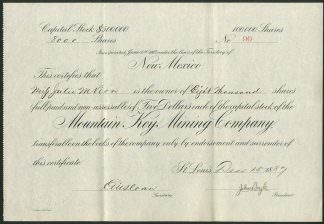 Capital Stock $500,000 100,000 Shares
Shares No 90
Incorporated under the laws of the Territory of
New Mexico
This certifies that
Mrs Julia is the owner of Eight Thousand shares
full paid and non-assessable of Five Dollars each of the capital stock of the
Mountain Key Mining Company,
transferable on the books of the company only by endorsement and surrender of
this certificate.
St. Louis, 1887
Secretary President